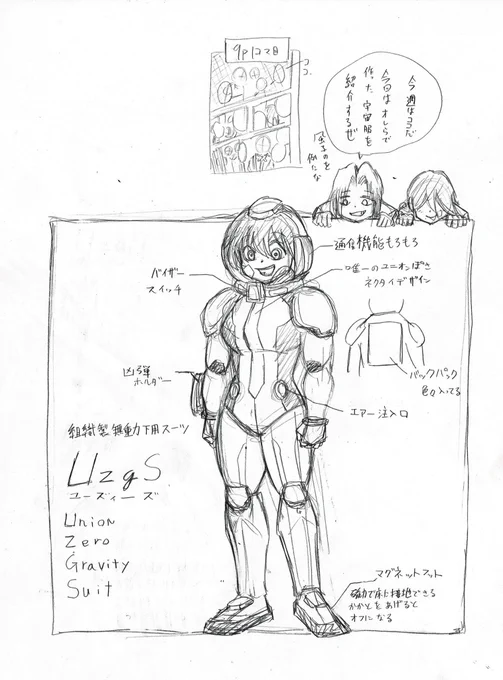 9p1コマ目
ココ
今週はココだ
今日はオレらで
作った宇宙服を
紹介するぜ
通信機能もろもろ
唯一のユニオンぽさ
ネクタイデザイン
バイザー
スイッチ
バックパック
色々入ってる
凶弾
ホルダー
エアー注入口
組織製無重力下用スーツ
UzgS
ユーズィーズ
Union
Zero
Gravity
Suit
マグネットフット
磁力で床に接地できる
かかとをあげると
オフになる